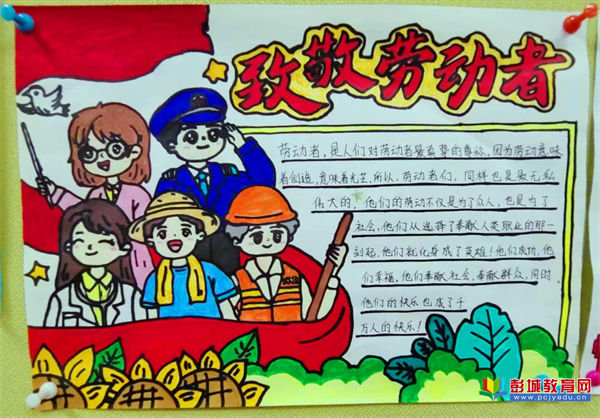 致敬劳动者
劳动者，是人们对劳动者最真挚的尊称，因为劳动意味
着创造，意味着礼艺，所以，劳动者们，同样也是最无私
伟大的，他们的劳动不仅是为了众人，也是为了
社会，他们从选择了奉献人类职业的那一
刻起，他们就化身成了英雄！他们成功，他
们幸福，他们奉献社会，奉献群众，同时
他们的快乐也成了千
万人的快乐！
彭城教育网
www.pcjyedu.cn